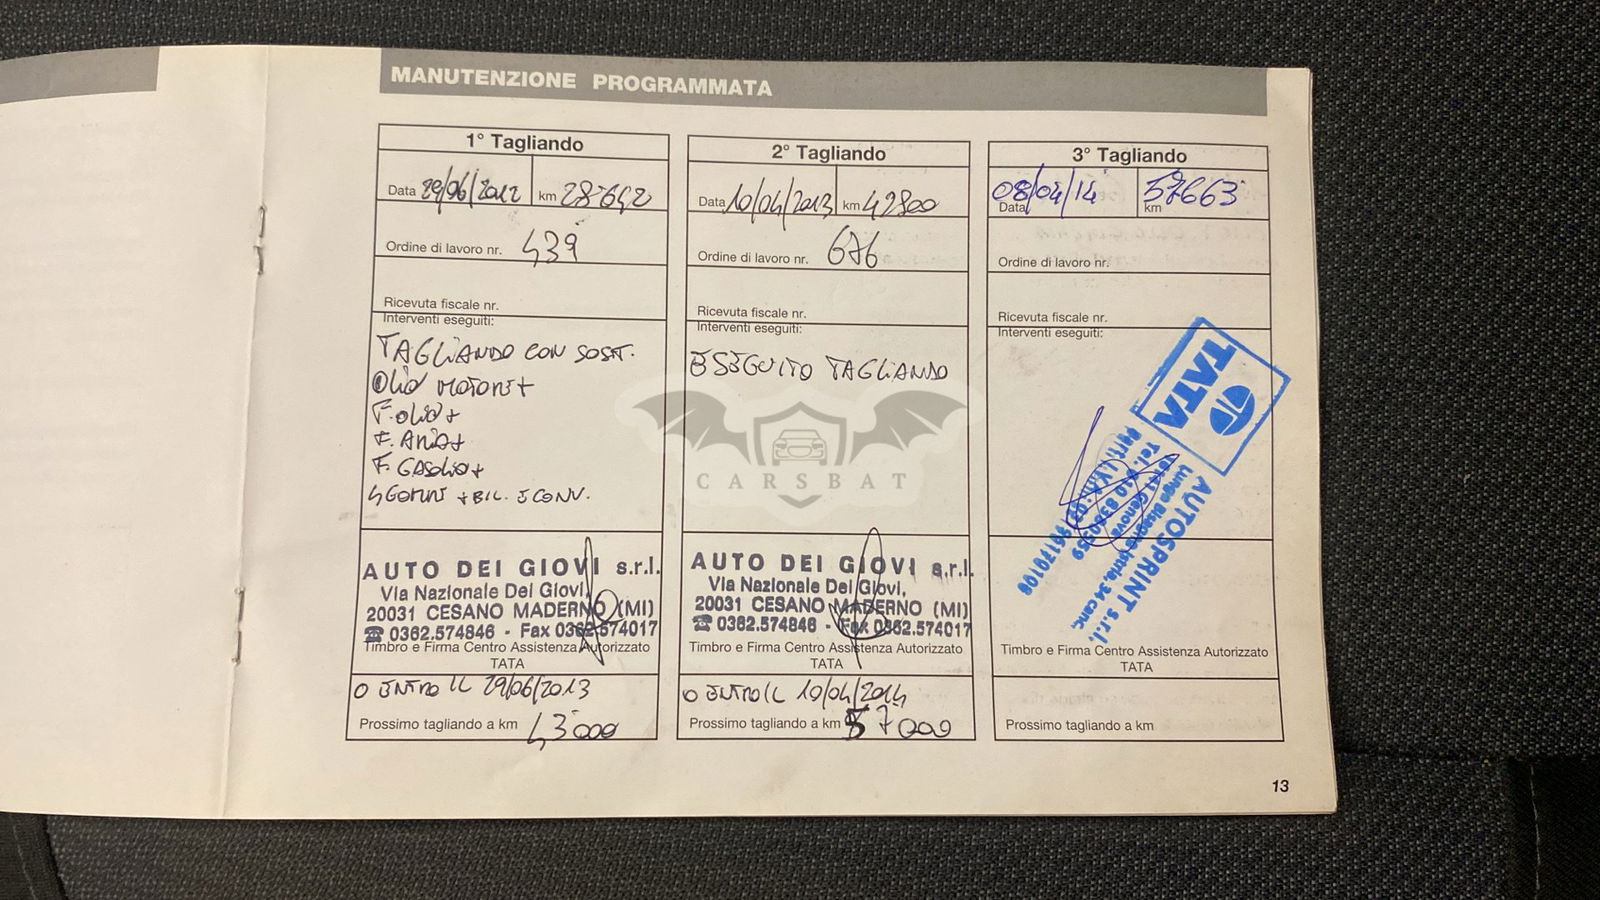 MANUTENZIONE PROGRAMMATA
1° Tagliando
Data 29/06/2012 km 28642
Ordine di lavoro nr. 439
Ricevuta fiscale nr.
Interventi eseguiti:
TAGLIANDO CON SOST.
OLIO MOTORE+
F.OLIO+
F.ARIA+
F.GASOLIO+
4 GOMME +BIL. E CONV.
AUTO DEI GIOVI s.r.l.
Via Nazionale Dei Giovi,
20031 CESANO MADERNO (MI)
☎ 0362.574846 - Fax 0362.574017
Timbro e Firma Centro Assistenza Autorizzato
TATA
O ENTRO IL 29/06/2013
Prossimo tagliando a km 43000
2° Tagliando
Data 10/04/2013 km 42800
Ordine di lavoro nr. 676
Ricevuta fiscale nr.
Interventi eseguiti:
ESEGUITO TAGLIANDO
AUTO DEI GIOVI s.r.l.
Via Nazionale Dei Giovi,
20031 CESANO MADERNO (MI)
☎ 0362.574846 - Fax 0362.574017
Timbro e Firma Centro Assistenza Autorizzato
TATA
O ENTRO IL 10/04/2014
Prossimo tagliando a km 57000
3° Tagliando
Data 08/04/14 km 57663
Ordine di lavoro nr.
Ricevuta fiscale nr.
Interventi eseguiti:
TATA
AUTOSPRINT s.r.l.
Lungo Bisagno Istria, 34 canc.
16141 Genova
Tel. 010 8360559
Timbro e Firma Centro Assistenza Autorizzato
TATA
Prossimo tagliando a km
CARSBAT
13